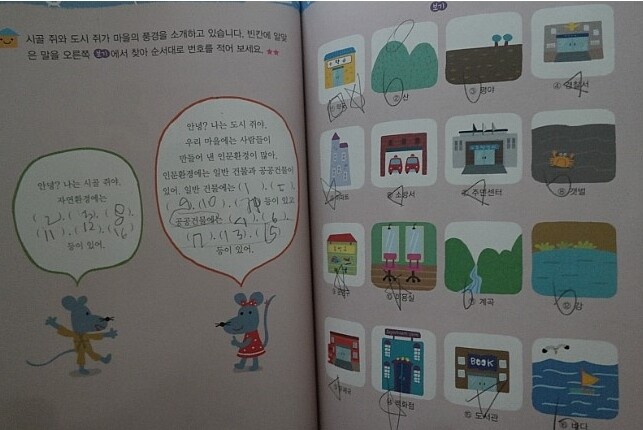 시골 쥐와 도시 쥐가 마을의 풍경을 소개하고 있습니다. 빈칸에 알맞
은 말을 오른쪽 보기 에서 찾아 순서대로 번호를 적어 보세요. ★★
안녕? 나는 시골 쥐야.
자연환경에는
(2), (3), (8),
(11), (12), (16)
등이 있어.
안녕? 나는 도시 쥐야.
우리 마을에는 사람들이
만들어 낸 인문환경이 많아.
인문환경에는 일반 건물과 공공건물이
있어. 일반 건물에는 (1), (5),
(9), (10), ( ) 등이 있고
공공건물에는 (4), (6),
(7), (13), (15)
등이 있어.
보기
② 산
③ 평야
④ 경찰서
소방서
주민센터
⑧ 갯벌
⑩ 미용실
⑪ 계곡
⑫ 강
BOOK
⑭ 백화점
⑮ 도서관
⑯ 바다